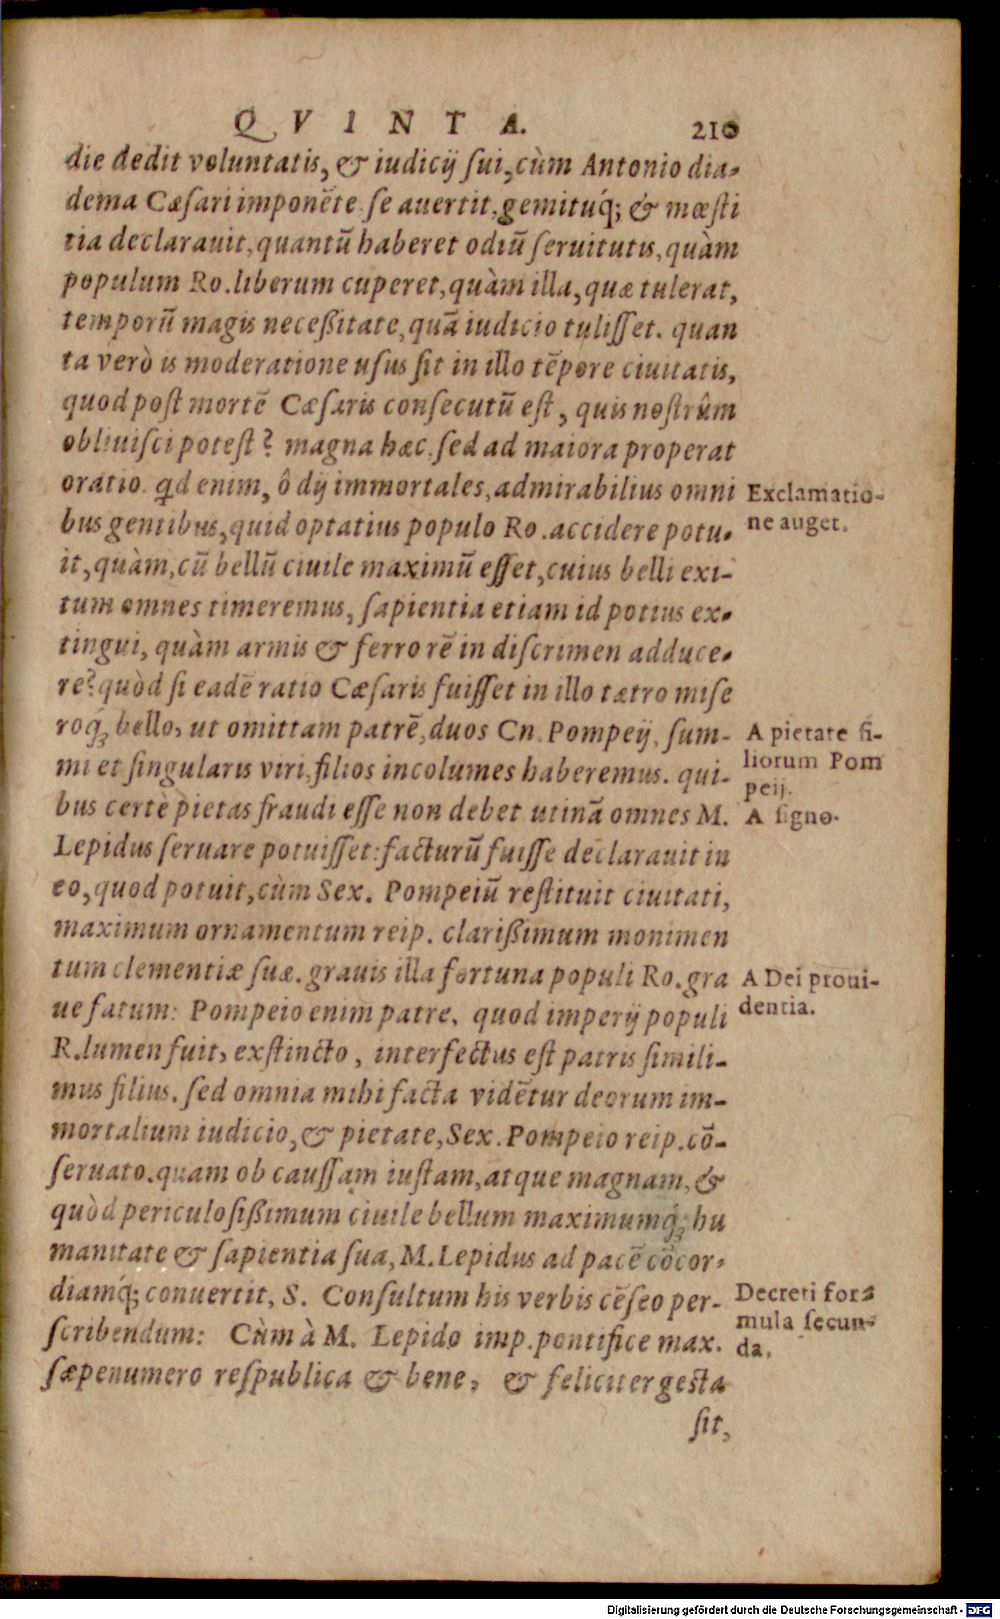 QVINTA. 210
die dedit voluntatis, & iudicij sui, cùm Antonio dia-
dema Cæsari imponẽte se auertit, gemituq́; & mœsti
tia declarauit, quantũ haberet odiũ seruitutis, quàm
populum Ro. liberum cuperet, quàm illa, quæ tulerat,
temporũ magis neceßitate, quã iudicio tulisset. quan
ta verò is moderatione usus sit in illo tẽpore ciuitatis,
quod post mortẽ Cæsaris consecutũ est, quis nostrûm
obliuisci potest? magna hæc. sed ad maiora properat
oratio. qd enim, ô dij immortales, admirabilius omni
bus gentibus, quid optatius populo Ro. accidere potu-
it, quàm, cũ bellũ ciuile maximũ esset, cuius belli exi-
tum omnes timeremus, sapientia etiam id potius ex-
tingui, quàm armis & ferro rẽ in discrimen adduce-
re? quòd si eadẽ ratio Cæsaris fuisset in illo tætro mise
roq́; bello, ut omittam patrẽ, duos Cn. Pompeij, sum-
mi et singularis viri, filios incolumes haberemus. qui-
bus certè pietas fraudi esse non debet utinã omnes M.
Lepidus seruare potuisset: facturũ fuisse declarauit in
eo, quod potuit, cùm Sex. Pompeiũ restituit ciuitati,
maximum ornamentum reip. clarißimum monimen
tum clementiæ suæ. grauis illa fortuna populi Ro. gra
ue fatum: Pompeio enim patre, quod imperij populi
R. lumen fuit, exstincto, interfectus est patris simili-
mus filius. sed omnia mihi facta vidẽtur deorum im-
mortalium iudicio, & pietate, Sex. Pompeio reip. cõ-
seruato. quam ob caussam iustam, atque magnam, &
quòd periculosißimum ciuile bellum maximumq́; hu
manitate & sapientia sua, M. Lepidus ad pacẽ cõcor-
diamq́; conuertit, S. Consultum his verbis cẽseo per-
scribendum: Cùm à M. Lepido imp. pontifice max.
sæpenumero respublica & bene, & feliciter gesta
sit,
Exclamatio-
ne auget.
A pietate fi-
liorum Pom
peij.
A signo.
A Dei proui-
dentia.
Decreti for-
mula secun-
da.
Digitalisierung gefördert durch die Deutsche Forschungsgemeinschaft - DFG